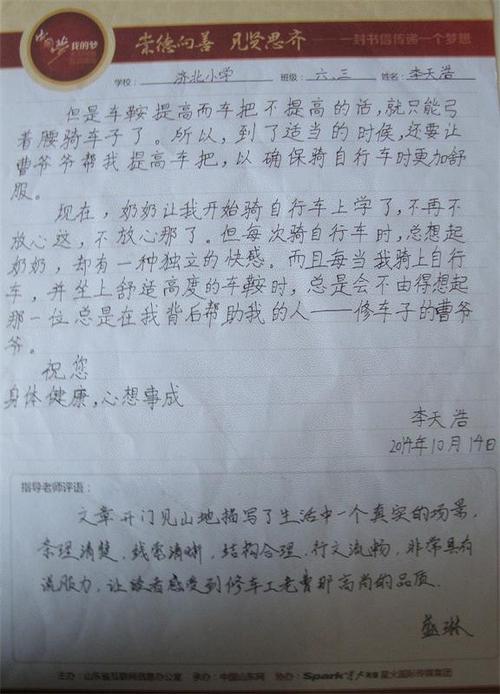 中国梦 我的梦
崇德向善 见贤思齐 一封书信传递一个梦想
学校：济北小学 班级：六.三 姓名：李天浩
但是车鞍提高而车把不提高的话，就只能弓
着腰骑车子了。所以，到了适当的时候，还要让
曹爷爷帮我提高车把，以确保骑自行车时更加舒
服。
现在，奶奶让我开始骑自行车上学了，不再不
放心这，不放心那了。但每次骑自行车时，总想起
奶奶，却有一种独立的快感。而且每当我骑上自行
车，并坐上舒适高度的车鞍时，总是会不由得想起
那一位总是在我背后帮助我的人——修车子的曹爷
爷。
祝您
身体健康，心想事成
李天浩
2014年10月14日
指导老师评语：
文章开门见山地描写了生活中一个真实的场景，
条理清楚，线索清晰，结构合理，行文流畅，非常具有
说服力，让读者感受到修车工老曹那高尚的品质。
盛琳
主办：山东省互联网信息办公室 承办：中国山东网 协办：Spark星火英语 星火国际传媒集团